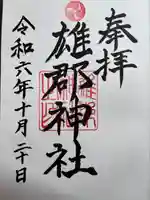 奉拝
雄郡神社
令和六年十月二十日